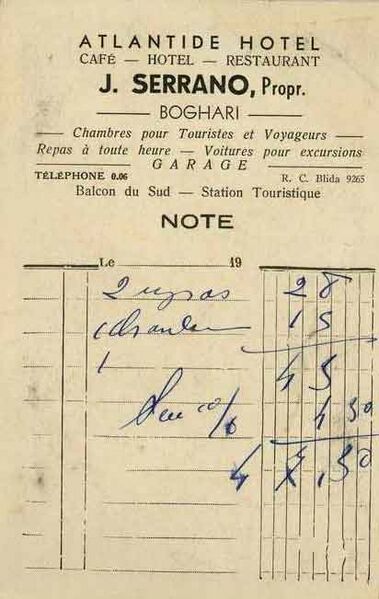 ATLANTIDE HOTEL
CAFÉ — HOTEL — RESTAURANT
J. SERRANO, Propr.
BOGHARI
Chambres pour Touristes et Voyageurs
Repas à toute heure — Voitures pour excursions
GARAGE
TÉLÉPHONE 0.06 R. C. Blida 9265
Balcon du Sud — Station Touristique
NOTE
Le 19
2 repas 28
1 chambre 15
1 43
4 30
47,30